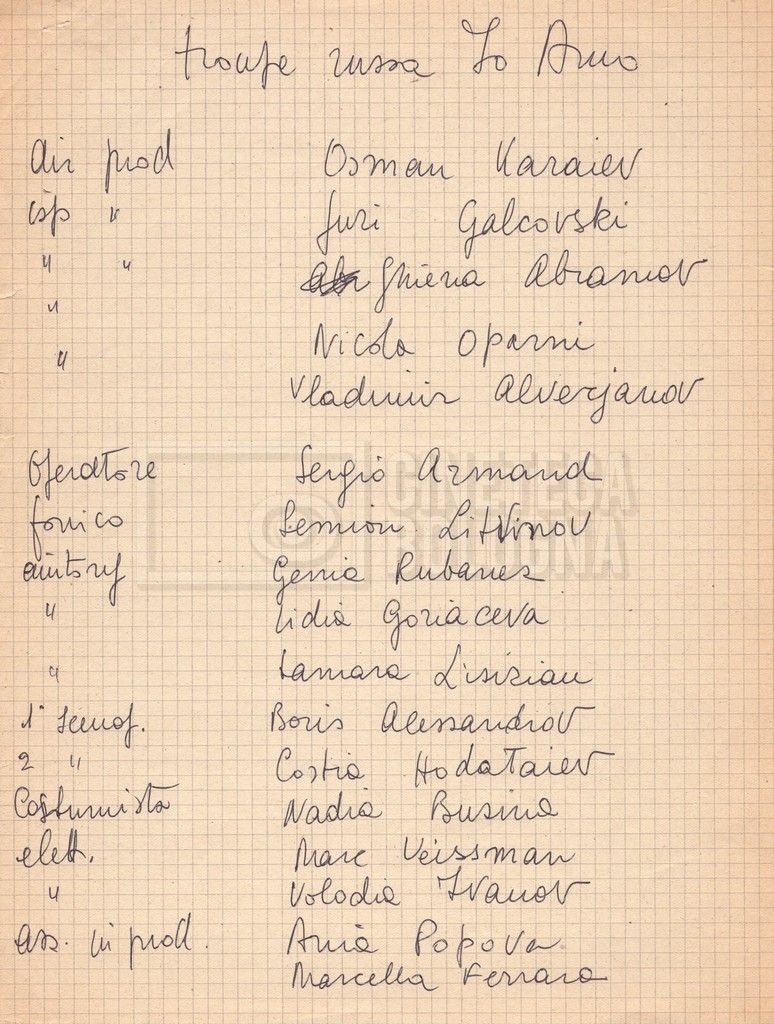 troupe russa Io Amo
dir prod Osman Karaiev
isp " Juri Galcovski
" " Ghiena Abramov
"
" Nicola Oparni
Vladimir Alverjanov
CINETECA
BOLOGNA
Operatore Sergio Armand
fonico Semion Litvinov
aiutoreg Genia Rubanez
" Lidia Goriaceva
" tamara Lisizian
1° scenof. Boris Alessandrov
2 " Costia Hodataiev
Costumista Nadia Busina
elett. Marc Veissman
" Volodia Ivanov
ass. di prod. Ania Popova
Marcella Ferrara